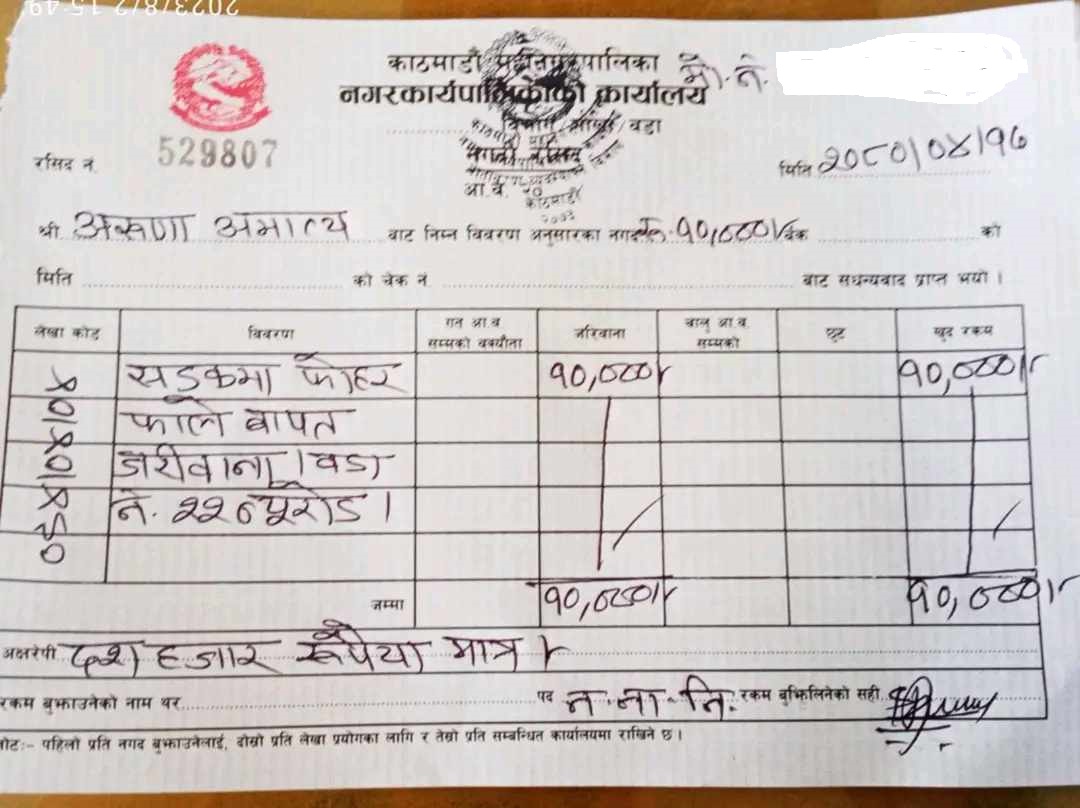 2023/8/2 15:49
काठमाडौं महानगरपालिका
नगरकार्यपालिकाको कार्यालय मो. ने.
विभाग/शाखा/वडा
रसिद नं. 529807
नगदी रसिद
मिति २०८०/०४/१७
आ.व.
काठमाडौं
श्री अरुणा अमात्य बाट निम्न विवरण अनुसारका नगद रु. १०,०००/- चेक को
मिति को चेक नं बाट सधन्यवाद प्राप्त भयो ।
लेखा कोड विवरण गत आ.व सम्मको बक्यौता जरिवाना चालु आ.व. सम्मको छुट खुद रकम
सडकमा फोहर १०,०००/- १०,०००/-
फाले बापत
जरीवाना । वडा
नं. २२ न्यूरोड ।
जम्मा १०,०००/- १०,०००/-
अक्षरेपी दश हजार रूपैया मात्र ।-
रकम बुझाउनेको नाम थर पद न.ना.नि. रकम बुझिलिनेको सही
नोट:- पहिलो प्रति नगद बुझाउनेलाई, दोस्रो प्रति लेखा प्रयोगका लागि र तेस्रो प्रति सम्बन्धित कार्यालयमा राखिने छ ।